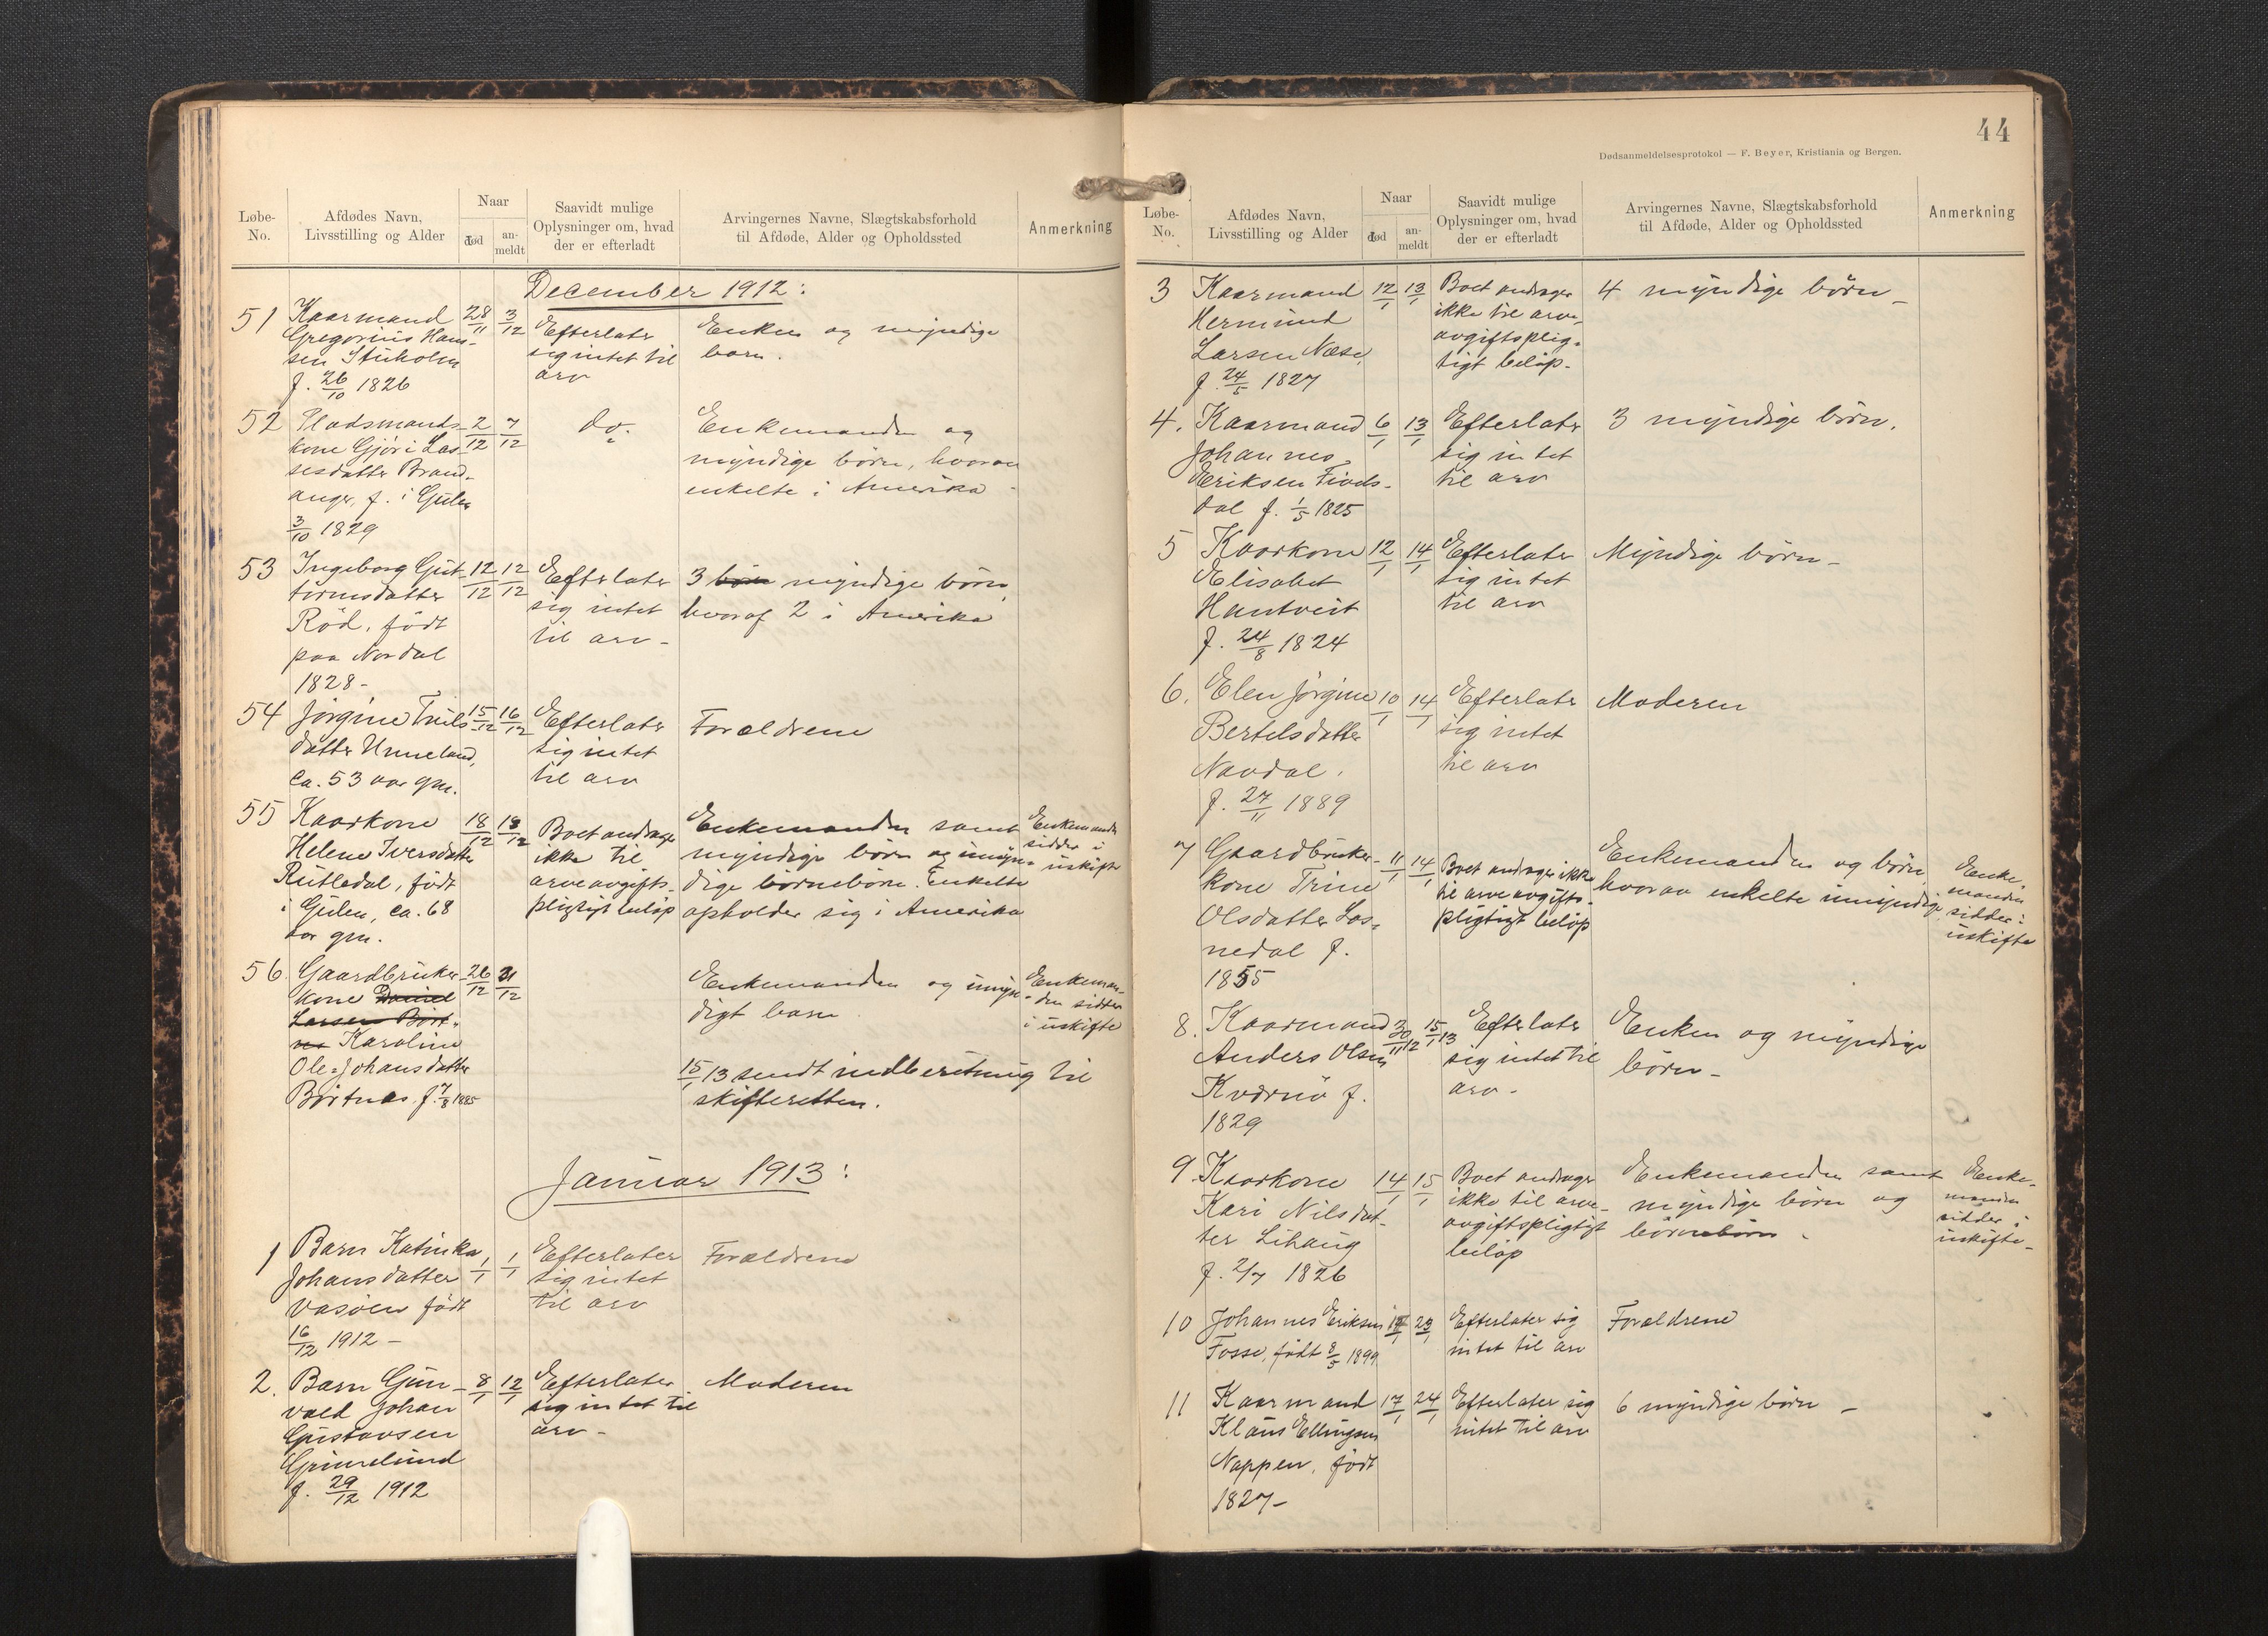 Løbe-
No.
Afdødes Navn,
Livsstilling og Alder
Naar
død
an-
meldt
Saavidt mulige
Oplysninger om, hvad
der er efterladt
Arvingernes Navne, Slægtskabsforhold
til Afdøde, Alder og Opholdssted
Anmerkning
December 1912:
51
Kaarmand
Gregorius Han-
sen Stuholm
f. 26/10 1826
28/11
3/12
Efterlater
sig intet til
arv
Enken og myndige
barn.
52
Pladsmands-
kone Gjøri Las-
sesdatter Brand-
anger, f. i Gulen
3/10 1829
2/12
7/12
do.
Enkemanden og
myndige börn, hvorav
enkelte i Amerika -
53
Ingeborg Gut-
tormsdatter
Röd, födt
paa Nordal
1828-
12/12
12/12
Efterlater
sig intet
til arv -
3 börn myndige börn,
hvoraf 2 i Amerika
54
Jörgine Nils
datter Unneland,
ca. 53 aar gm.
15/12
16/12
Efterlater
sig intet
til arv
Forældrene
55
Kaarkone
Helene Iversdatter
Rutledal, födt
i Gulen, ca. 68
aar gm.
18/12
18/12
Boet andrager
ikke til
arveavgifts-
pligtigt belöp
Enkemanden samt
myndige börn og umyn-
dige börnebörn. Enkelte
opholder sig i Amerika
Enkemanden
sidder i
uskifte
56.
Gaardbruker-
kone Daniel
Larsen Bört-
nes Karoline
Ole-Johansdatter
Börtnes f. 7/8 1885
26/12
31/12
Enkemanden og umyn-
digt barn
Enkeman-
den sidder
i uskifte
15/1 13 sendt indberetning til
skifteretten.
Januar 1913:
1
Barn Katinka
Johansdatter
Vasöen födt
16/12 1912 -
1/1
1/1
Efterlater
sig intet
til arv
Forældrene
2.
Barn Gun-
vald Johan
Gustavsen
Grimelund
f. 29/12 1912
8/1
12/1
Efterlater
sig intet til
arv -
Moderen
44
Dødsanmeldelsesprotokol — F. Beyer, Kristiania og Bergen.
Løbe-
No.
Afdødes Navn,
Livsstilling og Alder
Naar
død
an-
meldt
Saavidt mulige
Oplysninger om, hvad
der er efterladt
Arvingernes Navne, Slægtskabsforhold
til Afdøde, Alder og Opholdssted
Anmerkning
3
Kaarmand
Hermund
Larsen Næse,
f. 24/5 1827
12/1
13/1
Boet andrager
ikke til arve-
avgiftsplig-
tigt belöp -
4 myndige börn -
4.
Kaarmand
Johannes
Eriksen Fivels-
dal f. 1/5 1825
6/1
13/1
Efterlater
sig intet
til arv
3 myndige börn.
5
Kaarkone
Elisabet
Hantveit
f. 24/8 1824
12/1
14/1
Efterlater
sig intet
til arv
Myndige börn -
6.
Elen Jörgine
Bertelsdatter
Navdal.
f. 27/11 1889
10/1
14/1
Efterlater
sig intet
til arv
Moderen
7
Gaardbruker-
kone Trine
Olsdatter Los-
nedal f.
1855
11/1
14/1
Boet andrager ikke
til arveavgifts-
pligtigt belöp
Enkemanden og börn
hvorav enkelte umyndige
Enke-
manden
sidder i
uskifte
8.
Kaarmand
Anders Olsen
Kværnö f.
1829
30/11 12
15/1 13
Efterlater
sig intet til
arv -
Enken og myndige
börn -
9.
Kaarkone
Kari Nilsdat-
ter Lihaug
f. 2/7 1826
14/1
15/1
Boet andrager
ikke til arve-
avgiftspligtigt
belöp
Enkemanden samt
myndige börn og
börnebörn.
Enke-
manden
sidder i
uskifte -
10
Johannes Eriksen
Fosse, födt 8/5 1899
23/1
Efterlater sig
intet til arv
Forældrene
11
Kaarmand
Klaus Ellingsen
Nappen, födt
1827-
17/1
24/1
Efterlater sig
intet til arv
6 myndige börn -